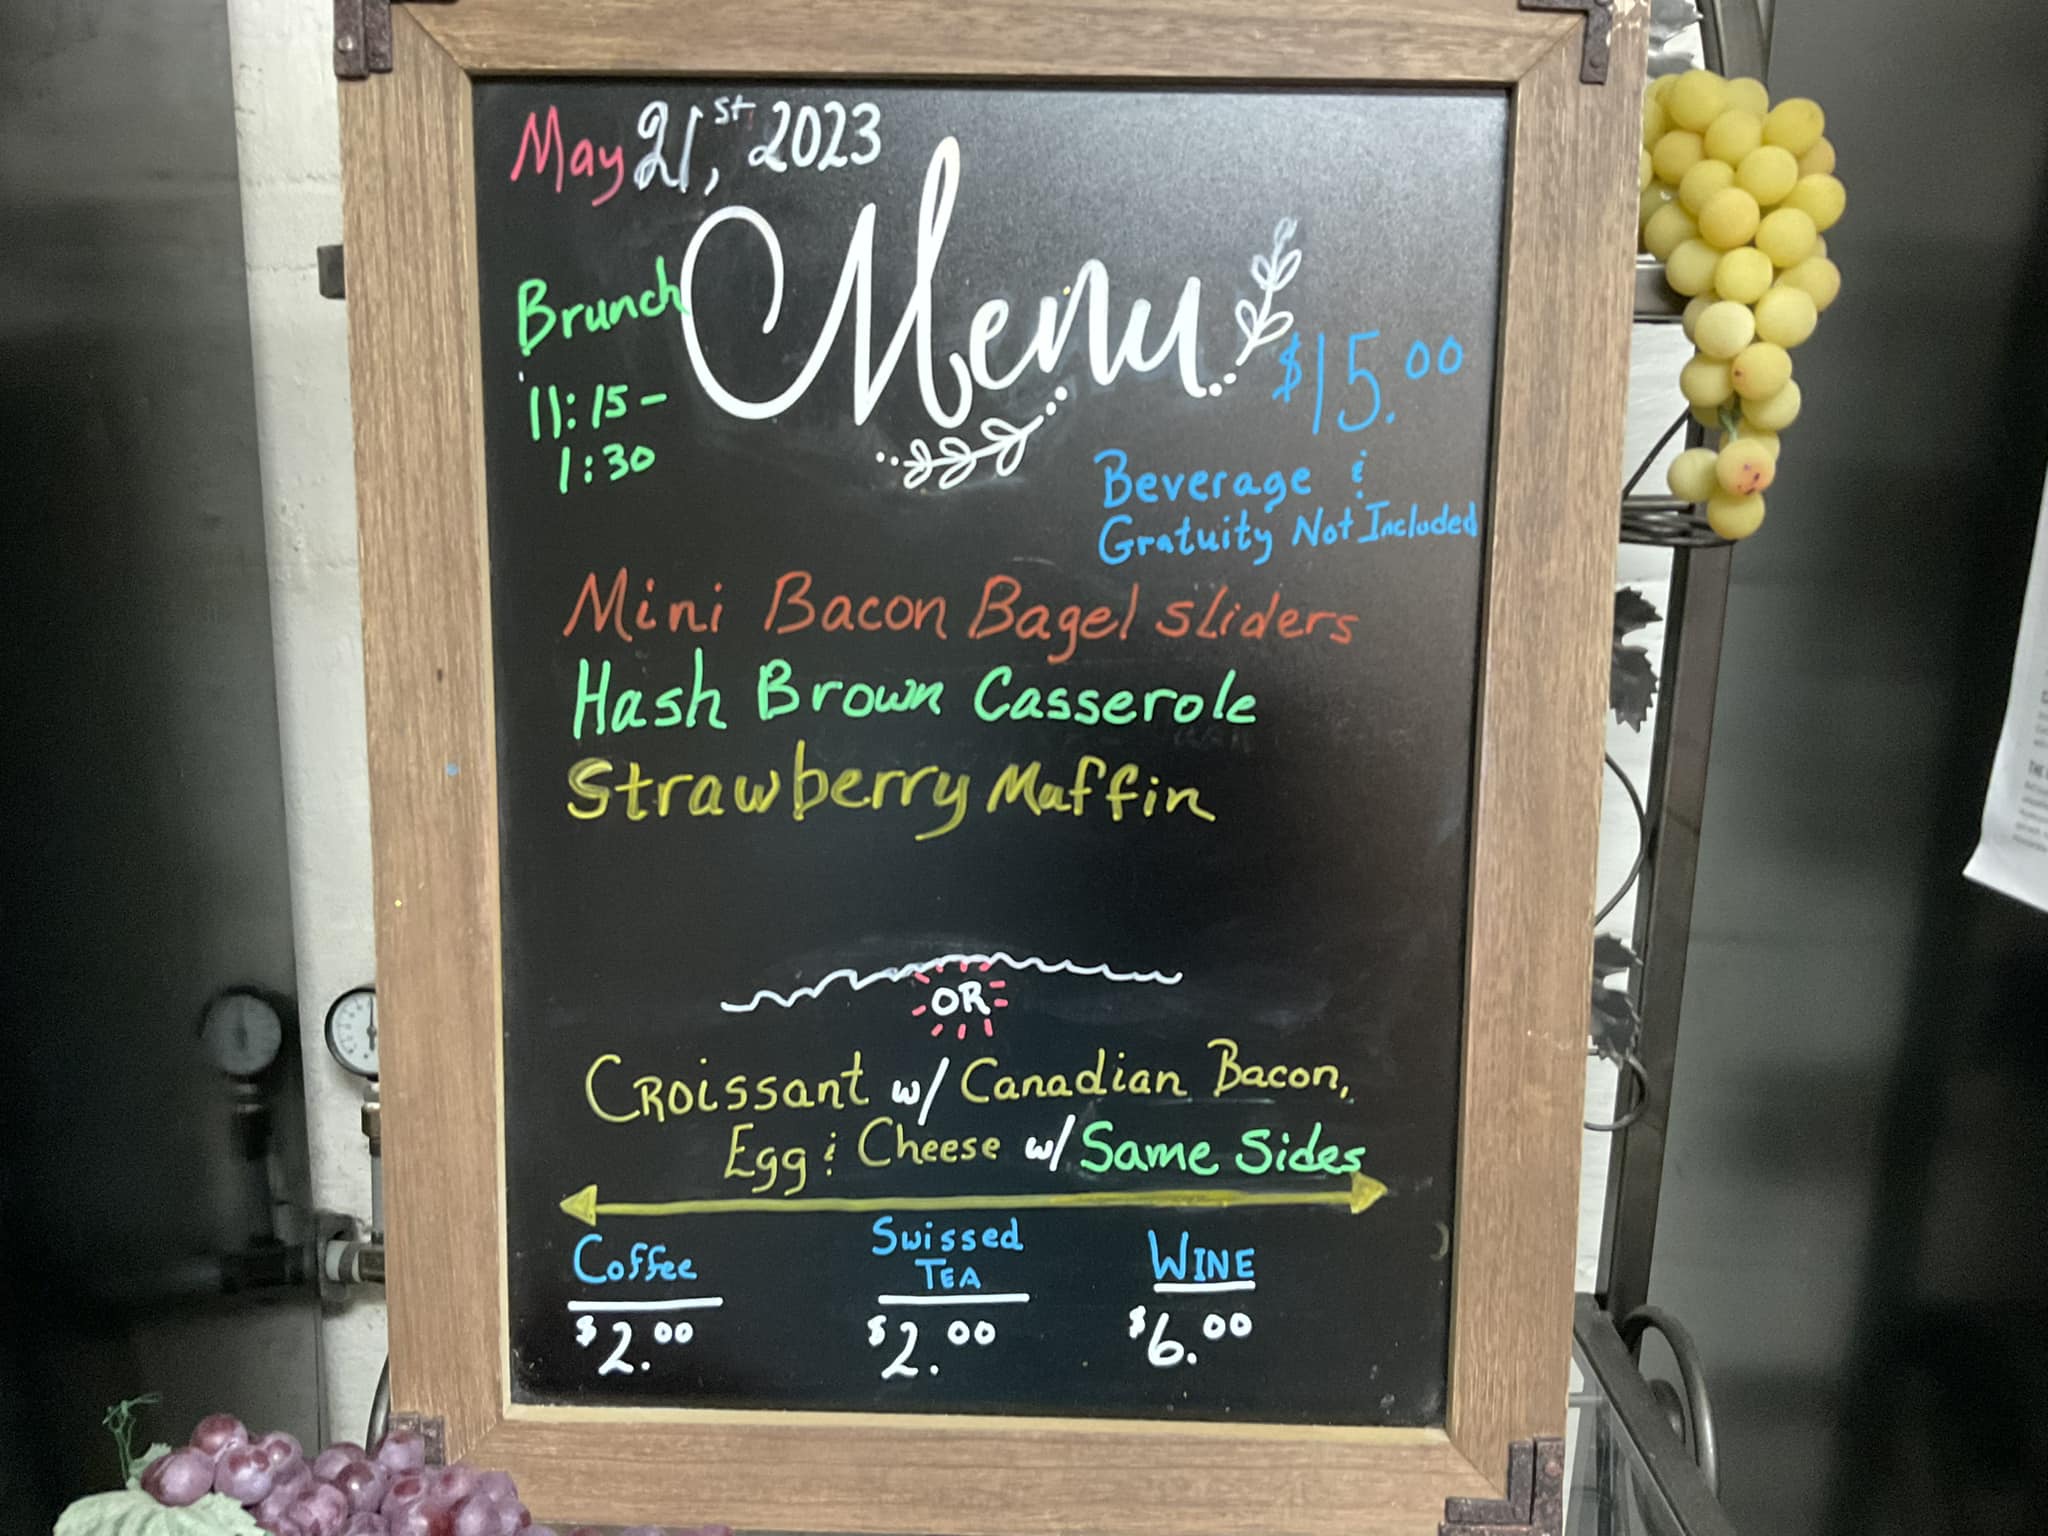 May 21st, 2023
Menu
Brunch
11:15-
1:30
$15.00
Beverage &
Gratuity Not Included
Mini Bacon Bagel Sliders
Hash Brown Casserole
Strawberry Muffin
OR
Croissant w/ Canadian Bacon,
Egg & Cheese w/ Same Sides
Coffee
$2.00
Swissed
Tea
$2.00
Wine
$6.00